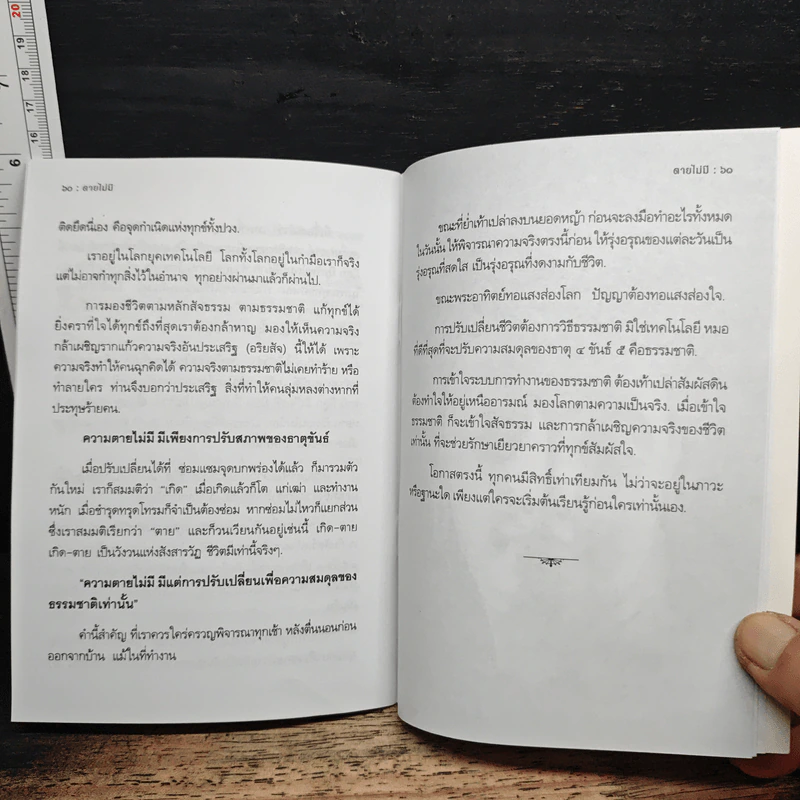 20
19
18
17
16
7
6
๖๐ : ตายไม่มี
ติดยึดนี่เอง คือจุดกำเนิดแห่งทุกข์ทั้งปวง.
เราอยู่ในโลกยุคเทคโนโลยี โลกทั้งโลกอยู่ในกำมือเราก็จริง
แต่ไม่อาจกำทุกสิ่งไว้ในอำนาจ ทุกอย่างผ่านมาแล้วก็ผ่านไป.
การมองชีวิตตามหลักสัจธรรม ตามธรรมชาติ แก้ทุกข์ได้
ยิ่งคราที่ใจได้ทุกข์ถึงที่สุดเราต้องกล้าหาญ มองให้เห็นความจริง
กล้าเผชิญรากแก้วความจริงอันประเสริฐ (อริยสัจ) นี้ให้ได้ เพราะ
ความจริงทำให้คนฉุกคิดได้ ความจริงตามธรรมชาติไม่เคยทำร้าย หรือ
ทำลายใคร ท่านจึงบอกว่าประเสริฐ สิ่งที่ทำให้คนลุ่มหลงต่างหากที่
ประทุษร้ายคน.
ความตายไม่มี มีเพียงการปรับสภาพของธาตุขันธ์
เมื่อปรับเปลี่ยนได้ที่ ซ่อมแซมจุดบกพร่องได้แล้ว ก็มารวมตัว
กันใหม่ เราก็สมมติว่า “เกิด” เมื่อเกิดแล้วก็โต แก่เฒ่า และทำงาน
หนัก เมื่อชำรุดทรุดโทรมก็จำเป็นต้องซ่อม หากซ่อมไม่ไหวก็แยกส่วน
ซึ่งเราสมมติเรียกว่า “ตาย” และก็วนเวียนกันอยู่เช่นนี้ เกิด-ตาย
เกิด-ตาย เป็นวังวนแห่งสังสารวัฏ ชีวิตมีเท่านี้จริงๆ.
“ความตายไม่มี มีแต่การปรับเปลี่ยนเพื่อความสมดุลของ
ธรรมชาติเท่านั้น”
คำนี้สำคัญ ที่เราควรใคร่ครวญพิจารณาทุกเช้า หลังตื่นนอนก่อน
ออกจากบ้าน แม้ในที่ทำงาน
ตายไม่มี : ๖๑
ขณะที่ย่ำเท้าเปล่าลงบนยอดหญ้า ก่อนจะลงมือทำอะไรทั้งหมด
ในวันนั้น ให้พิจารณาความจริงตรงนี้ก่อน ให้รุ่งอรุณของแต่ละวันเป็น
รุ่งอรุณที่สดใส เป็นรุ่งอรุณที่งดงามกับชีวิต.
ขณะพระอาทิตย์ทอแสงส่องโลก ปัญญาต้องทอแสงส่องใจ.
การปรับเปลี่ยนชีวิตต้องการวิธีธรรมชาติ มิใช่เทคโนโลยี หมอ
ที่ดีที่สุดที่จะปรับความสมดุลของธาตุ ๔ ขันธ์ ๕ คือธรรมชาติ.
การเข้าใจระบบการทำงานของธรรมชาติ ต้องเท้าเปล่าสัมผัสดิน
ต้องทำใจให้อยู่เหนืออารมณ์ มองโลกตามความเป็นจริง. เมื่อเข้าใจ
ธรรมชาติ ก็จะเข้าใจสัจธรรม และการกล้าเผชิญความจริงของชีวิต
เท่านั้น ที่จะช่วยรักษาเยียวยาคราวที่ทุกข์สัมผัสใจ.
โอกาสตรงนี้ ทุกคนมีสิทธิ์เท่าเทียมกัน ไม่ว่าจะอยู่ในภาวะ
หรือฐานะใด เพียงแต่ใครจะเริ่มต้นเรียนรู้ก่อนใครเท่านั้นเอง.